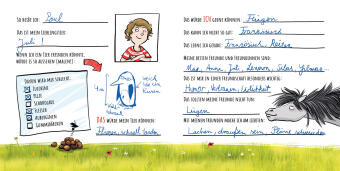 SO HEIßE ICH: Soul
DAS IST MEIN LIEBLINGSTIER:
WENN ICH EIN TIER ERFINDEN KÖNNTE,
WÜRDE ES SO AUSSEHEN (MALEN):
DAVON WIRD MIR SCHLECHT:
LAKRITZE
PILZE
SCHOKOLADE
FLEISCH
AUBERGINEN
GUMMIBÄRCHEN
weich
wie ein
Kissen
DAS WÜRDE MEIN TIER KÖNNEN:
Fliegen, schnell laufen
DAS WÜRDE ICH GERNE KÖNNEN: Fliegen
DAS KANN ICH NICHT SO GUT: Französisch
DAS LERNE ICH GERADE: Französisch, Reiten
MEINE BESTEN FREUNDE UND FREUNDINNEN SIND:
DAS IST MIR IN EINER FREUNDSCHAFT BESONDERS WICHTIG:
Humor, Vertrauen, Ehrlichkeit
DAS SOLLTEN MEINE FREUNDE NICHT TUN:
Lügen
MIT MEINEN FREUNDEN MACHE ICH AM LIEBSTEN:
Lachen, draußen sein, Pläne schmieden